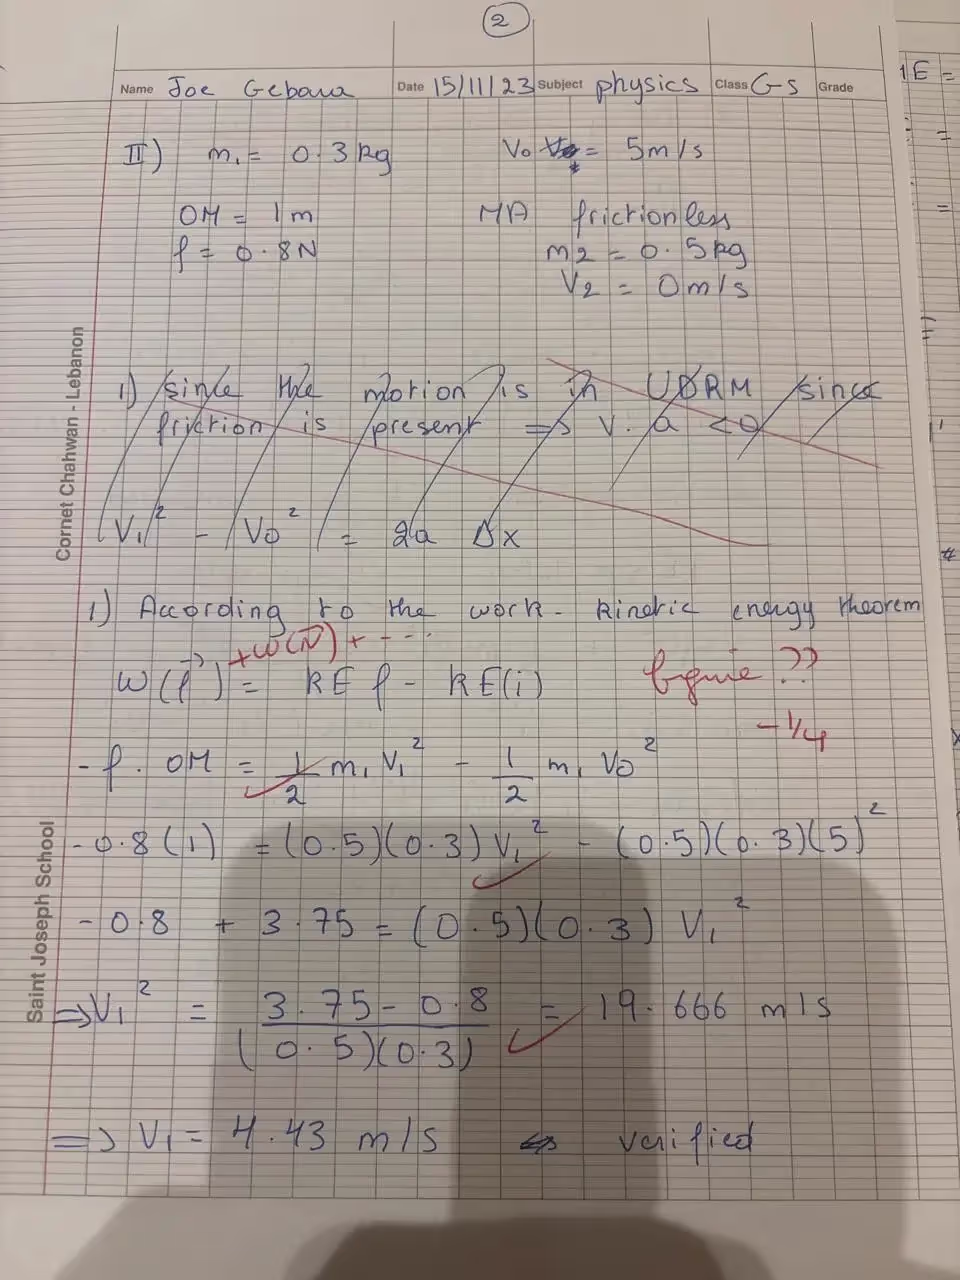 2
Name Joe Gebara Date 15/11/23 Subject physics Class GS Grade
II) m₁ = 0.3 kg V₀ = 5 m/s
OM = 1 m MA frictionless
f = 0.8 N m2 = 0.5 kg
V₂ = 0 m/s
1) since the motion is in UDRM since
friction is present => V. a < 0
V₁² - V0² = 2a Δx
1) According to the work - kinetic energy theorem
+W(N) + - - -
W(f) = KE f - KE(i) figure ??
- 1/4
- f . OM = 1/2 m₁ V₁² - 1/2 m₁ V0²
- 0.8 (1) = (0.5)(0.3) V₁² - (0.5)(0.3)(5)²
- 0.8 + 3.75 = (0.5)(0.3) V₁²
=> V₁² = 3.75 - 0.8 / (0.5)(0.3) = 19.666 m/s
=> V₁ = 4.43 m/s verified
Cornet Chahwan - Lebanon
Saint Joseph School
1E =